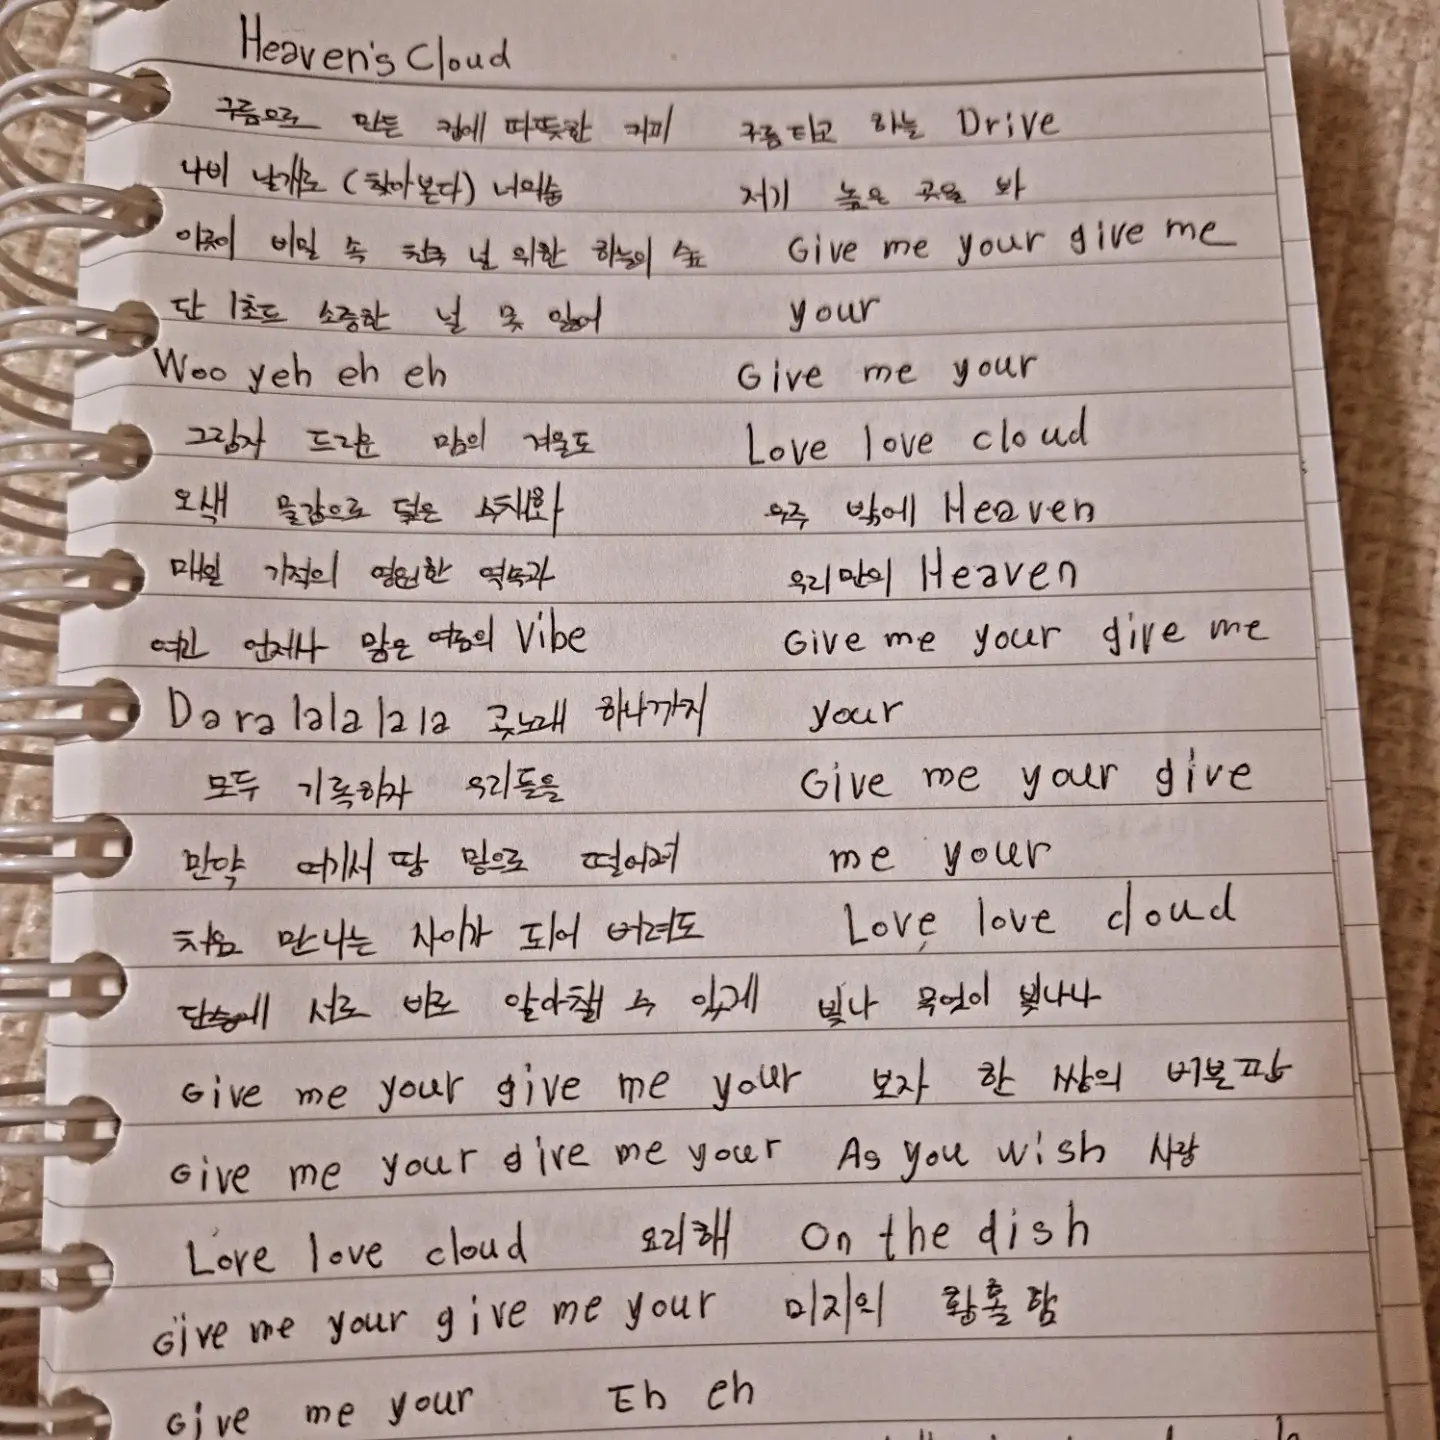 Heaven's Cloud
구름으로 만든 컵에 따뜻한 커피
나비 날개로 (찾아본다) 너의숨
이곳이 비밀 속 천국 널 위한 하늘의 숲
단 1초도 소중한 널 못 잊어
Woo yeh eh eh
그림자 드리운 맘의 겨울도
오색 물감으로 덮은 수채화
매일 기적의 영원한 약속과
여긴 언제나 맑은 여름의 Vibe
Daralalalala 콧노래 하나까지
모두 기록하자 우리들을
만약 여기서 땅 밑으로 떨어져
처음 만나는 사이가 되어 버려도
단숨에 서로 바로 알아챌 수 있게
Give me your give me your
Give me your give me your
Love love cloud
Give me your give me your
Give me your
구름타고 하늘 Drive
저기 높은 곳을 봐
Give me your give me
your
Give me your
Love love cloud
우주 밖에 Heaven
우리만의 Heaven
Give me your give me
your
Give me your give
me your
Love love cloud
빛나 무엇이 빛나나
보자 한 쌍의 버본팝
As you wish 사랑
요리해 On the dish
미지의 황홀함
Eh eh